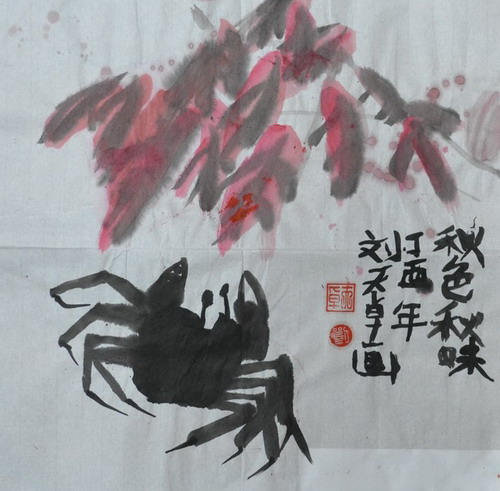 秋色秋味
丁酉年
刘天卓画